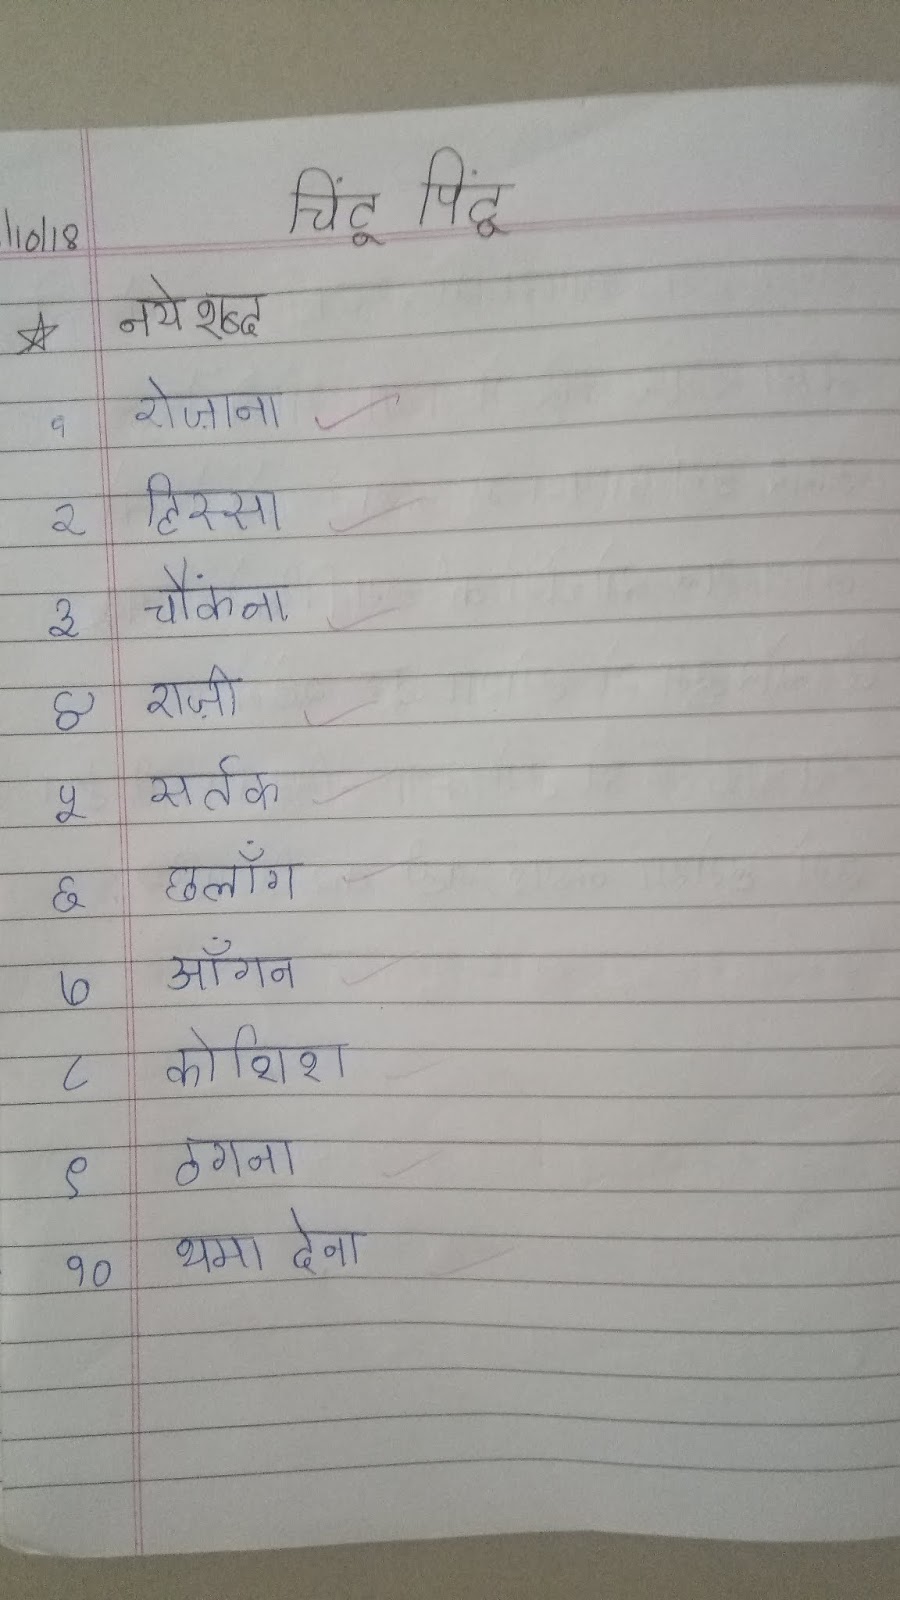 चिंटू पिंटू
/10/18
☆ नये शब्द
१ रोज़ाना
२ हिस्सा
३ चौंकना
४ राज़ी
५ सर्तक
६ छलाँग
७ आँगन
८ कोशिश
९ ठगना
१० थमा देना